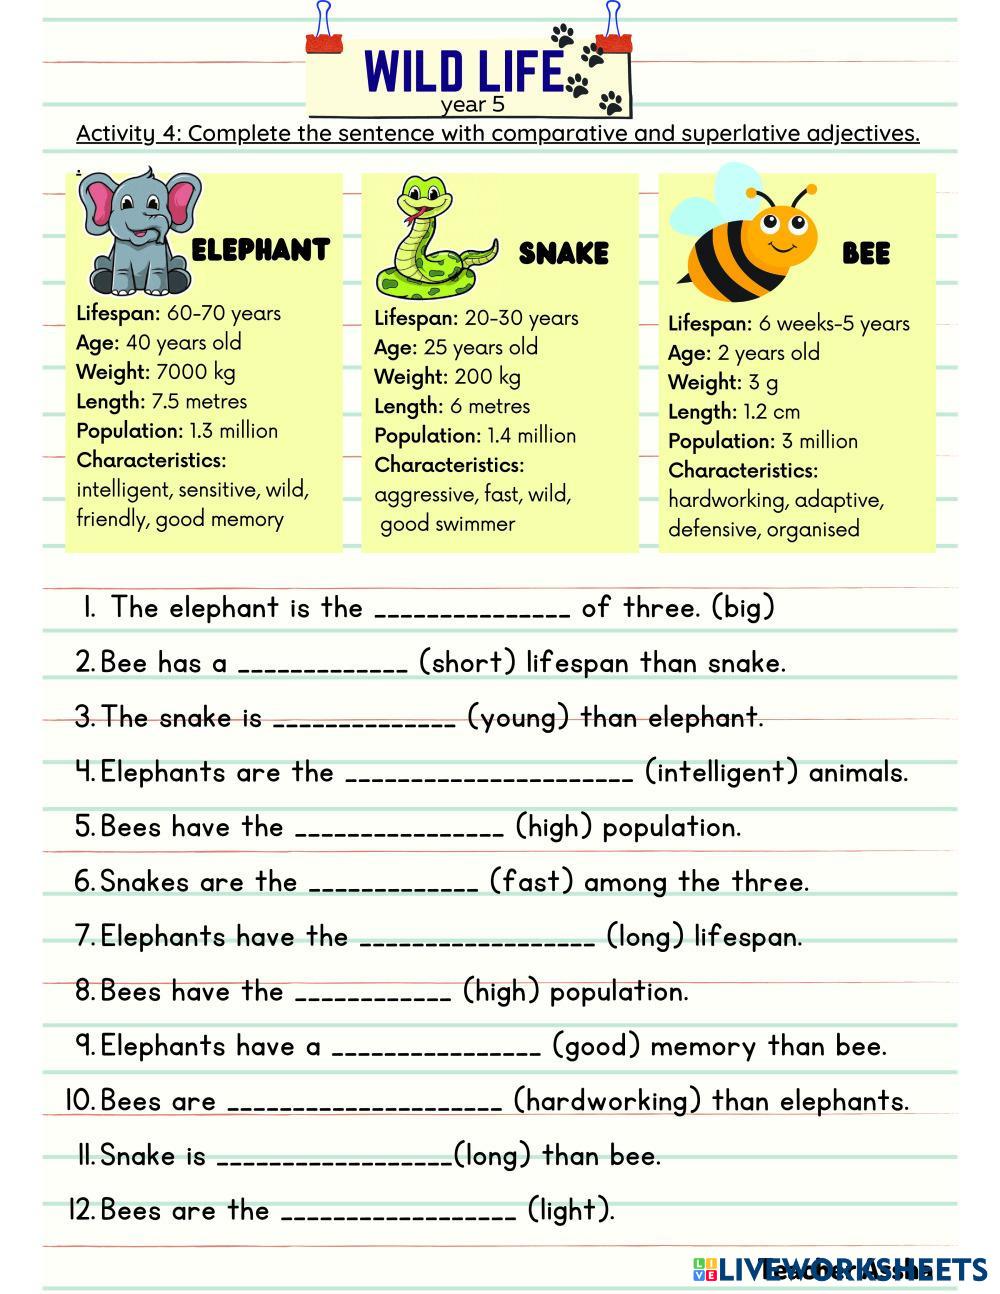 WILD LIFE
year 5
Activity 4: Complete the sentence with comparative and superlative adjectives.
.
ELEPHANT
Lifespan: 60-70 years
Age: 40 years old
Weight: 7000 kg
Length: 7.5 metres
Population: 1.3 million
Characteristics:
intelligent, sensitive, wild,
friendly, good memory
SNAKE
Lifespan: 20-30 years
Age: 25 years old
Weight: 200 kg
Length: 6 metres
Population: 1.4 million
Characteristics:
aggressive, fast, wild,
good swimmer
BEE
Lifespan: 6 weeks-5 years
Age: 2 years old
Weight: 3 g
Length: 1.2 cm
Population: 3 million
Characteristics:
hardworking, adaptive,
defensive, organised
1. The elephant is the _______________ of three. (big)
2. Bee has a _____________ (short) lifespan than snake.
3. The snake is ______________ (young) than elephant.
4. Elephants are the ______________________ (intelligent) animals.
5. Bees have the ________________ (high) population.
6. Snakes are the _____________ (fast) among the three.
7. Elephants have the __________________ (long) lifespan.
8. Bees have the ____________ (high) population.
9. Elephants have a ________________ (good) memory than bee.
10. Bees are _____________________ (hardworking) than elephants.
11. Snake is __________________(long) than bee.
12. Bees are the __________________ (light).
Teacher
LIVE LIVEWORKSHEETS